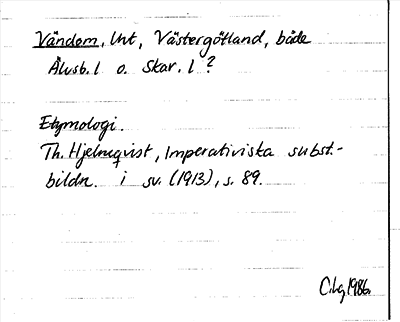 Vändom, Unt, Västergötland, både
Älvsb. l o. Skar. l ?
Etymologi.
Th. Hjelmqvist, Imperativiska subst.-
bildn. i sv. (1913), s. 89.
C.Lg 1986.